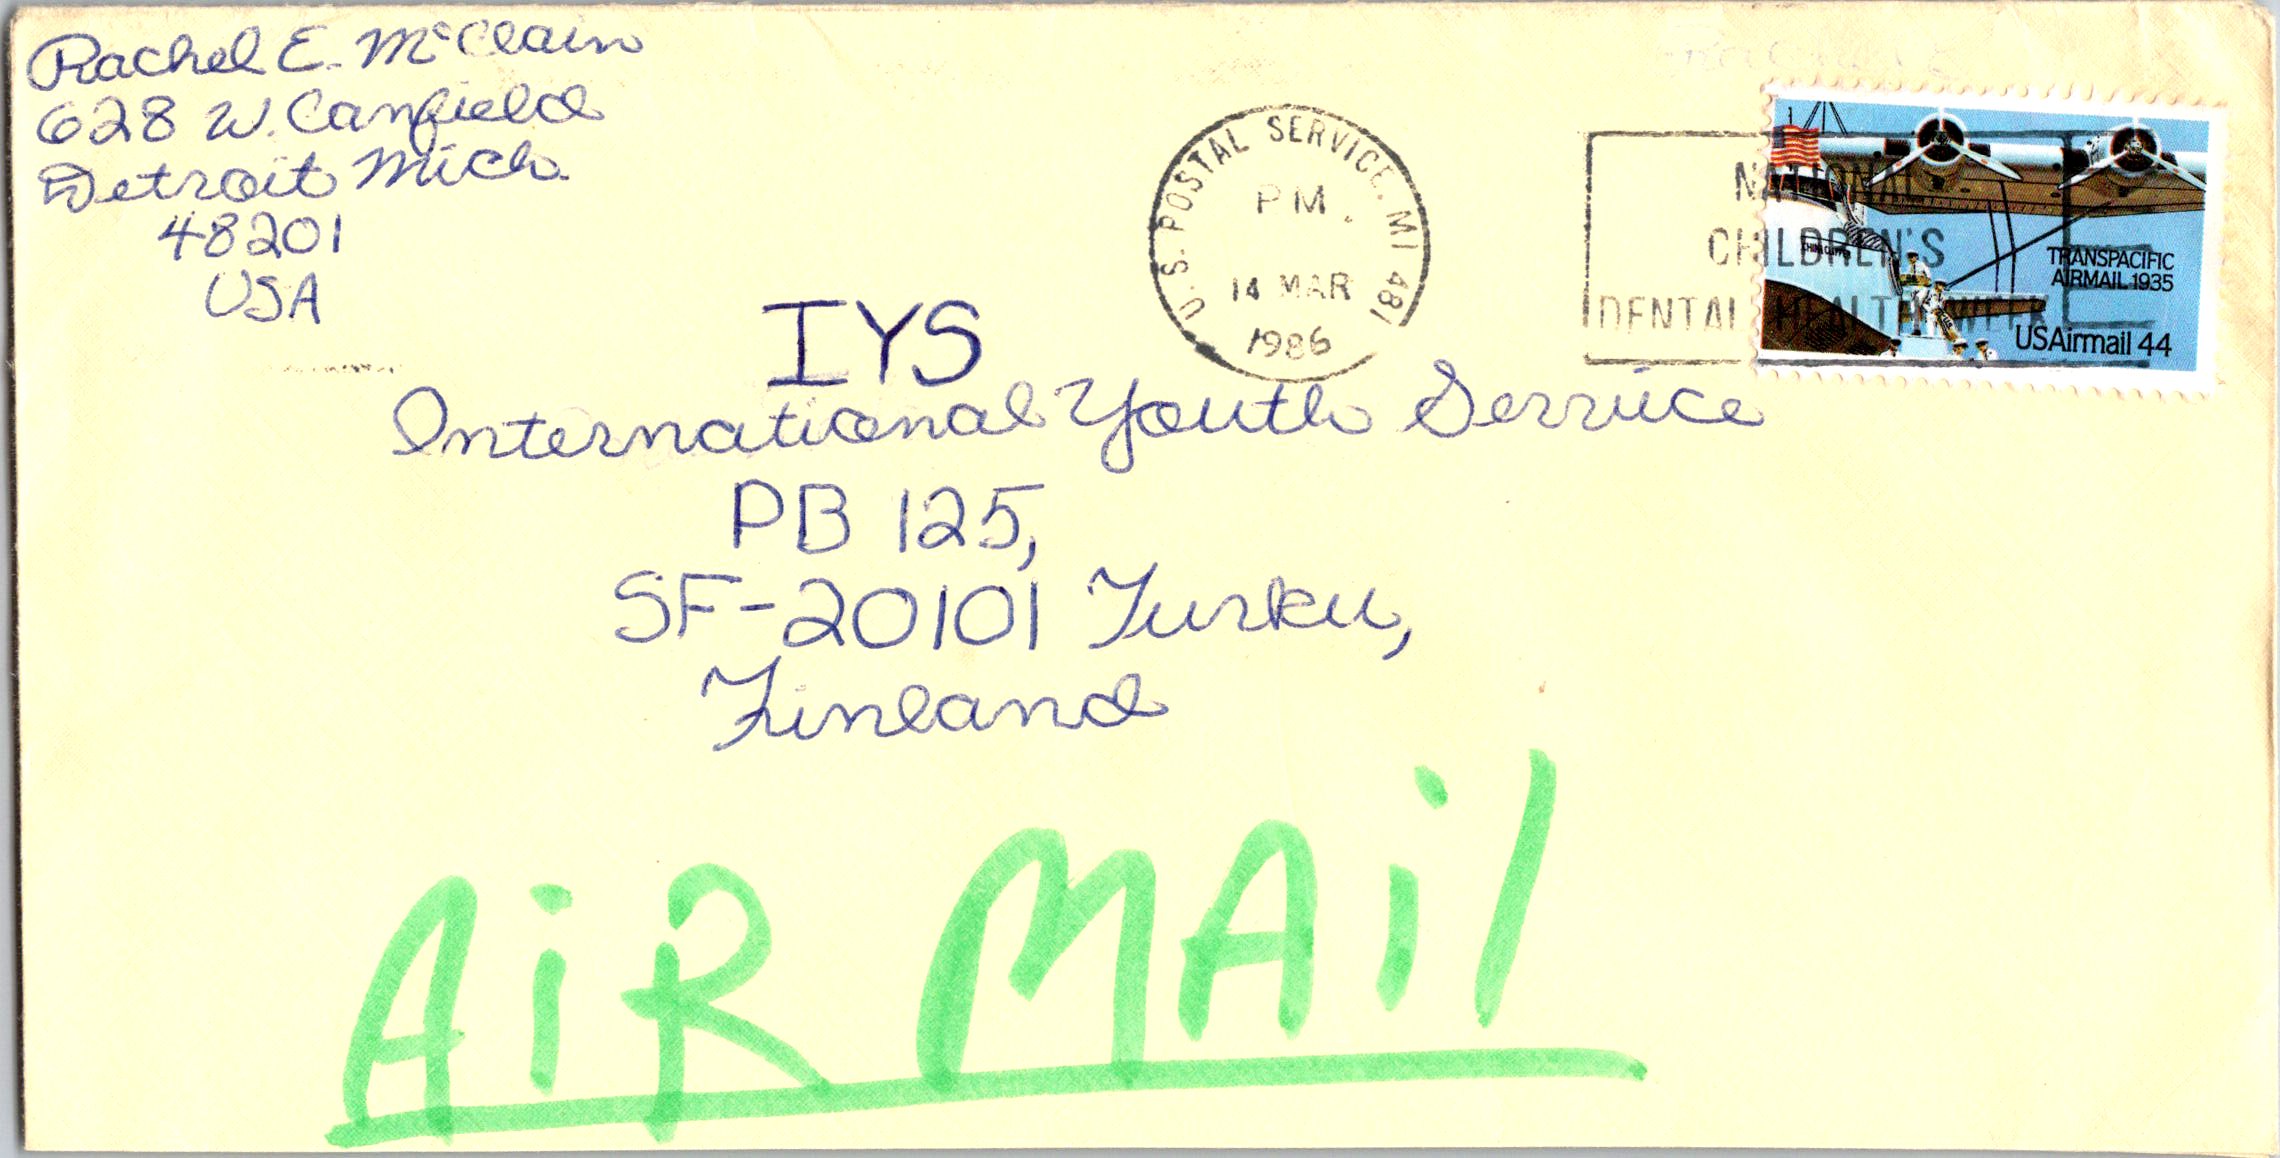 Rachel E. McClain
628 W. Canfield
Detroit Mich.
48201
USA
U.S. POSTAL SERVICE, MI 481
PM
14 MAR
1986
NATIONAL
CHILDREN'S
DENTAL HEALTH WEEK
TRANSPACIFIC
AIRMAIL 1935
USAirmail 44
IYS
International Youth Service
PB 125,
SF-20101 Turku,
Finland
AiR MAil